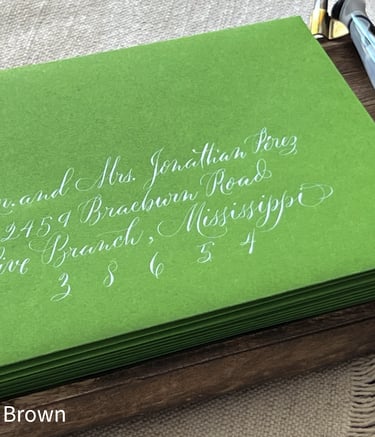 and Mrs. Jonathan Perez
2459 Braeburn Road
ive Branch, Mississippi
3 8 6 5 4
Brown